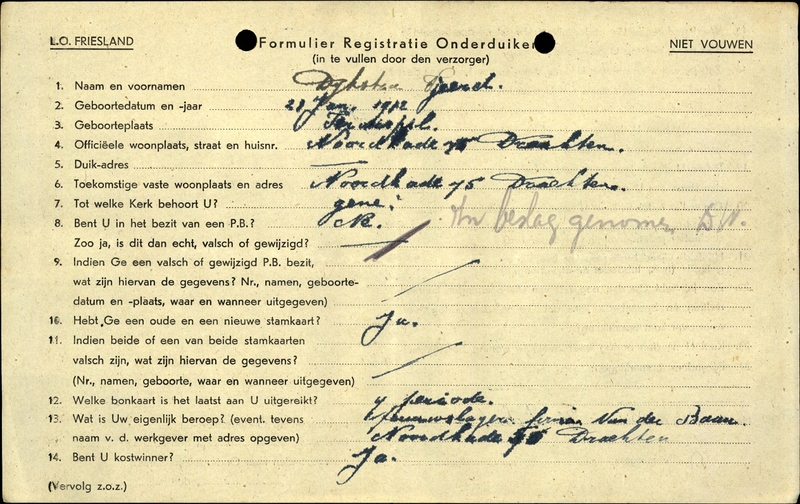 L.O. FRIESLAND
Formulier Registratie Onderduiker
NIET VOUWEN
(in te vullen door den verzorger)
1. Naam en voornamen Dijkstra Tjeerd.
2. Geboortedatum en -jaar 21 Jan. 1912
3. Geboorteplaats
4. Officiëele woonplaats, straat en huisnr. Noordkade 75 Drachten.
5. Duik-adres —
6. Toekomstige vaste woonplaats en adres Noordkade 75 Drachten.
7. Tot welke Kerk behoort U? gene.
8. Bent U in het bezit van een P.B.? In beslag genomen
Zoo ja, is dit dan echt, valsch of gewijzigd? —
9. Indien Ge een valsch of gewijzigd P.B. bezit,
wat zijn hiervan de gegevens? Nr., namen, geboorte-
datum en -plaats, waar en wanneer uitgegeven)
10. Hebt Ge een oude en een nieuwe stamkaart? Ja.
11. Indien beide of een van beide stamkaarten
valsch zijn, wat zijn hiervan de gegevens?
(Nr., namen, geboorte, waar en wanneer uitgegeven)
12. Welke bonkaart is het laatst aan U uitgereikt? periode.
13. Wat is Uw eigenlijk beroep? (event. tevens firma Van der Baan.
naam v. d. werkgever met adres opgeven) Noordkade Drachten
14. Bent U kostwinner? Ja.
(Vervolg z.o.z.)